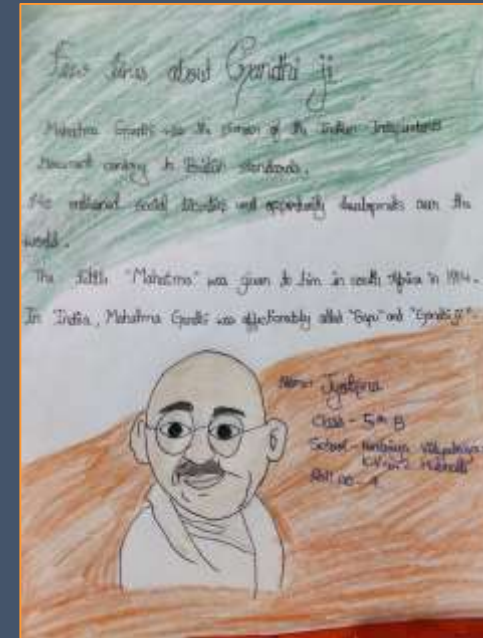 Few lines about Gandhi ji
Mahatma Gandhi was the pioneer of the Indian Independence
Movement contrary to British standards.
He social and opportunity developments over the
world.
The "Mahatma" was given to him in south Africa in 1914.
In India, Mahatma Gandhi was affectionately called "Bapu" and "Gandhi ji".
Name-
Class - 5th B
School - Vidyalaya
Roll no -